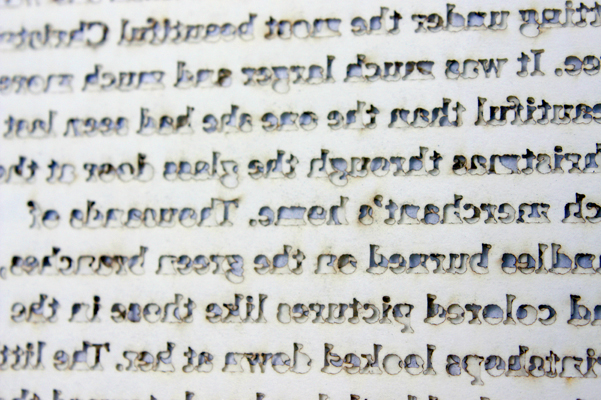 tting under the most beautiful Christm
ee. It was much larger and much more
eautiful than the one she had seen last
hristmas through the glass door at the
ch merchant's home. Thousands of
andles burned on the green branches,
nd colored pictures like those in the
intshops looked down at her. The litt